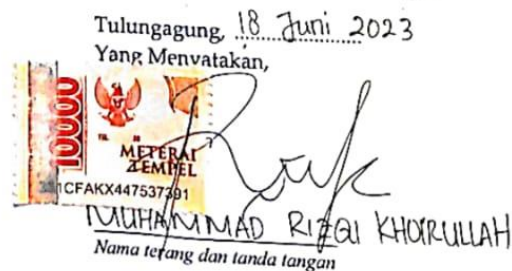 Tulungagung, 18 Juni 2023
Yang Menyatakan,
10000
METERAI
TEMPEL
CFAKX447537391
MUHAMMAD RIZQI KHOIRULLAH
Nama terang dan tanda tangan